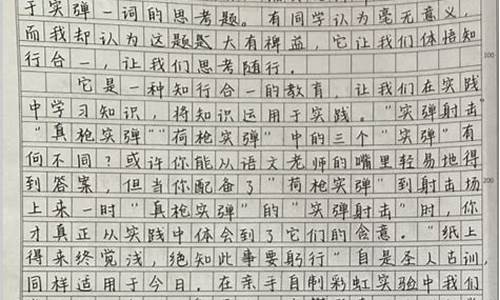 于实弹一词的思考题。有同学认为毫无意义,
而我却认为这题题大有裨益,它让我们体悟知
行合一,让我们思考随行.
100
它是一种知行合一的教育,让我们在实践
中学习知识,将知识运用于实践。"实弹射击"
"真枪实弹""荷枪实弹"中的三个"实弹"有
何不同?或许你能从语文老师的嘴里轻易地得
到答案,但当你配备了"荷枪实弹"到射击场
200
上来一时"真枪实弹"的"实弹射击"时,你
才真正从实践中体会到了它们的含意."纸上
得来终觉浅,绝知此事要躬行"自是圣人古训,
同样适用于今日.在亲手自制彩虹实验中我们